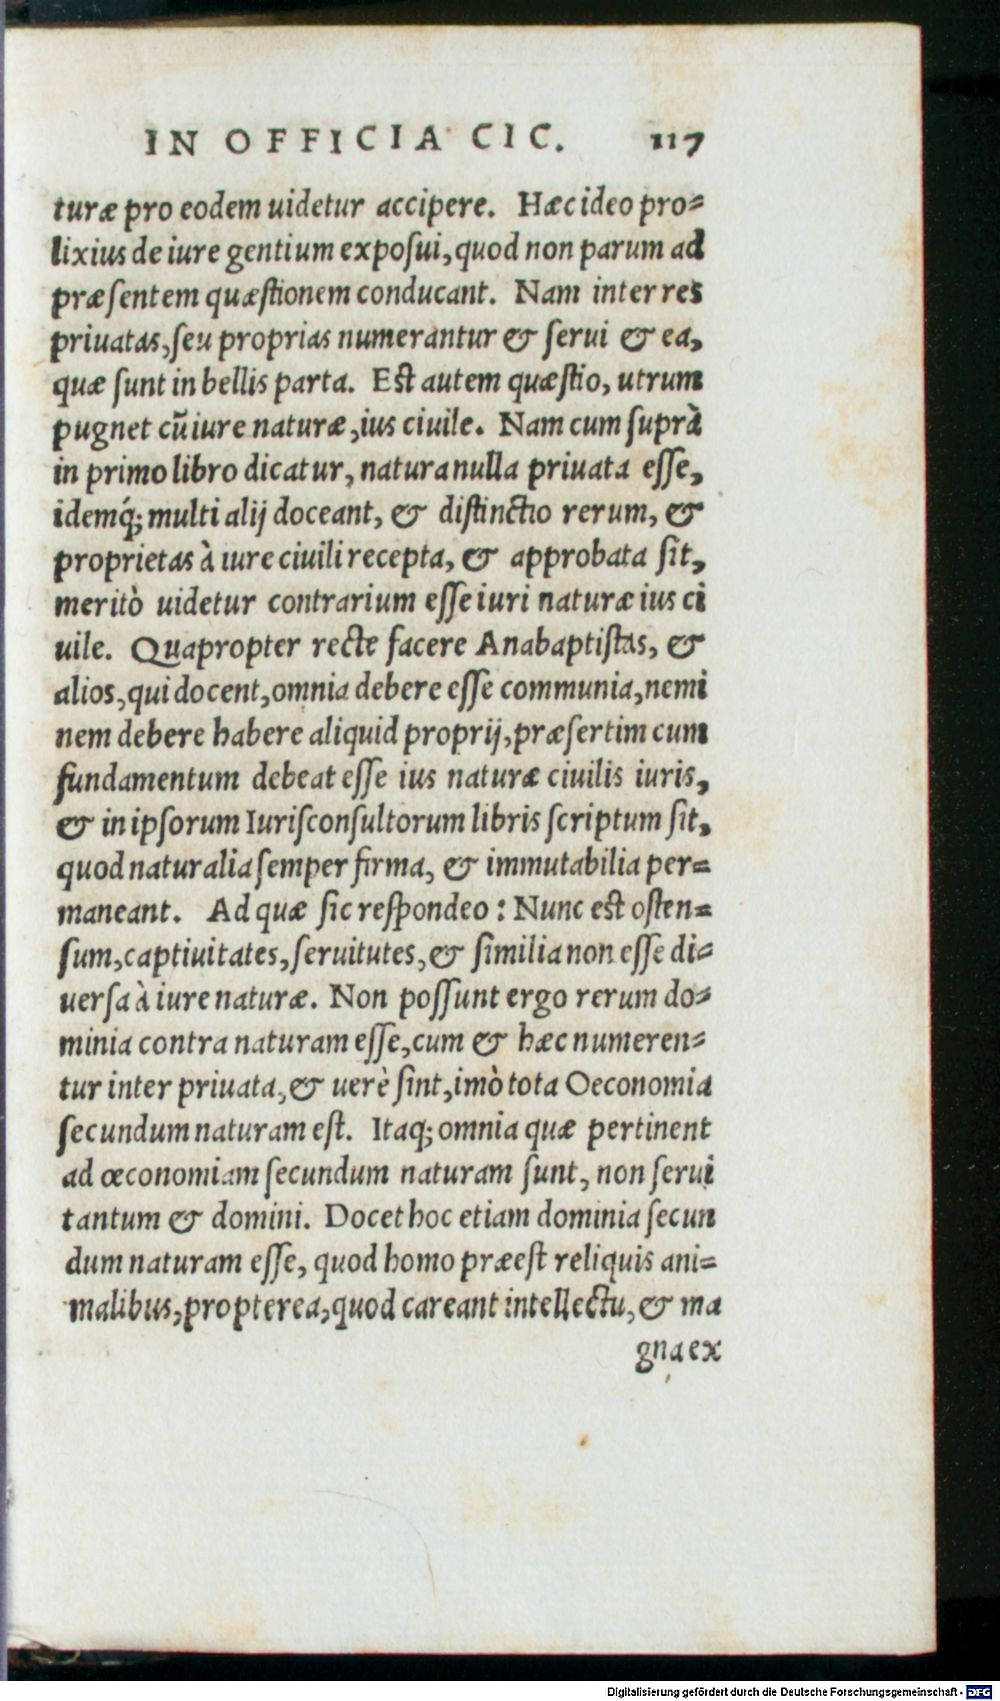 IN OFFICIA CIC. 117
turæ pro eodem uidetur accipere. Hæc ideo pro-
lixius de iure gentium exposui, quod non parum ad
præsentem quæstionem conducant. Nam inter res
priuatas, seu proprias numerantur & serui & ea,
quæ sunt in bellis parta. Est autem quæstio, utrum
pugnet cũ iure naturæ, ius ciuile. Nam cum suprà
in primo libro dicatur, natura nulla priuata esse,
idemq́; multi alij doceant, & distinctio rerum, &
proprietas à iure ciuili recepta, & approbata sit,
meritò uidetur contrarium esse iuri naturæ ius ci
uile. Quapropter recte facere Anabaptistas, &
alios, qui docent, omnia debere esse communia, nemi
nem debere habere aliquid proprij, præsertim cum
fundamentum debeat esse ius naturæ ciuilis iuris,
& in ipsorum Iurisconsultorum libris scriptum sit,
quod naturalia semper firma, & immutabilia per-
maneant. Ad quæ sic respondeo: Nunc est osten-
sum, captiuitates, seruitutes, & similia non esse di-
uersa à iure naturæ. Non possunt ergo rerum do-
minia contra naturam esse, cum & hæc numeren-
tur inter priuata, & uerè sint, imò tota Oeconomia
secundum naturam est. Itaq; omnia quæ pertinent
ad œconomiam secundum naturam sunt, non serui
tantum & domini. Docet hoc etiam dominia secun
dum naturam esse, quod homo præest reliquis ani-
malibus, propterea, quod careant intellectu, & ma
gna ex
Digitalisierung gefördert durch die Deutsche Forschungsgemeinschaft - DFG